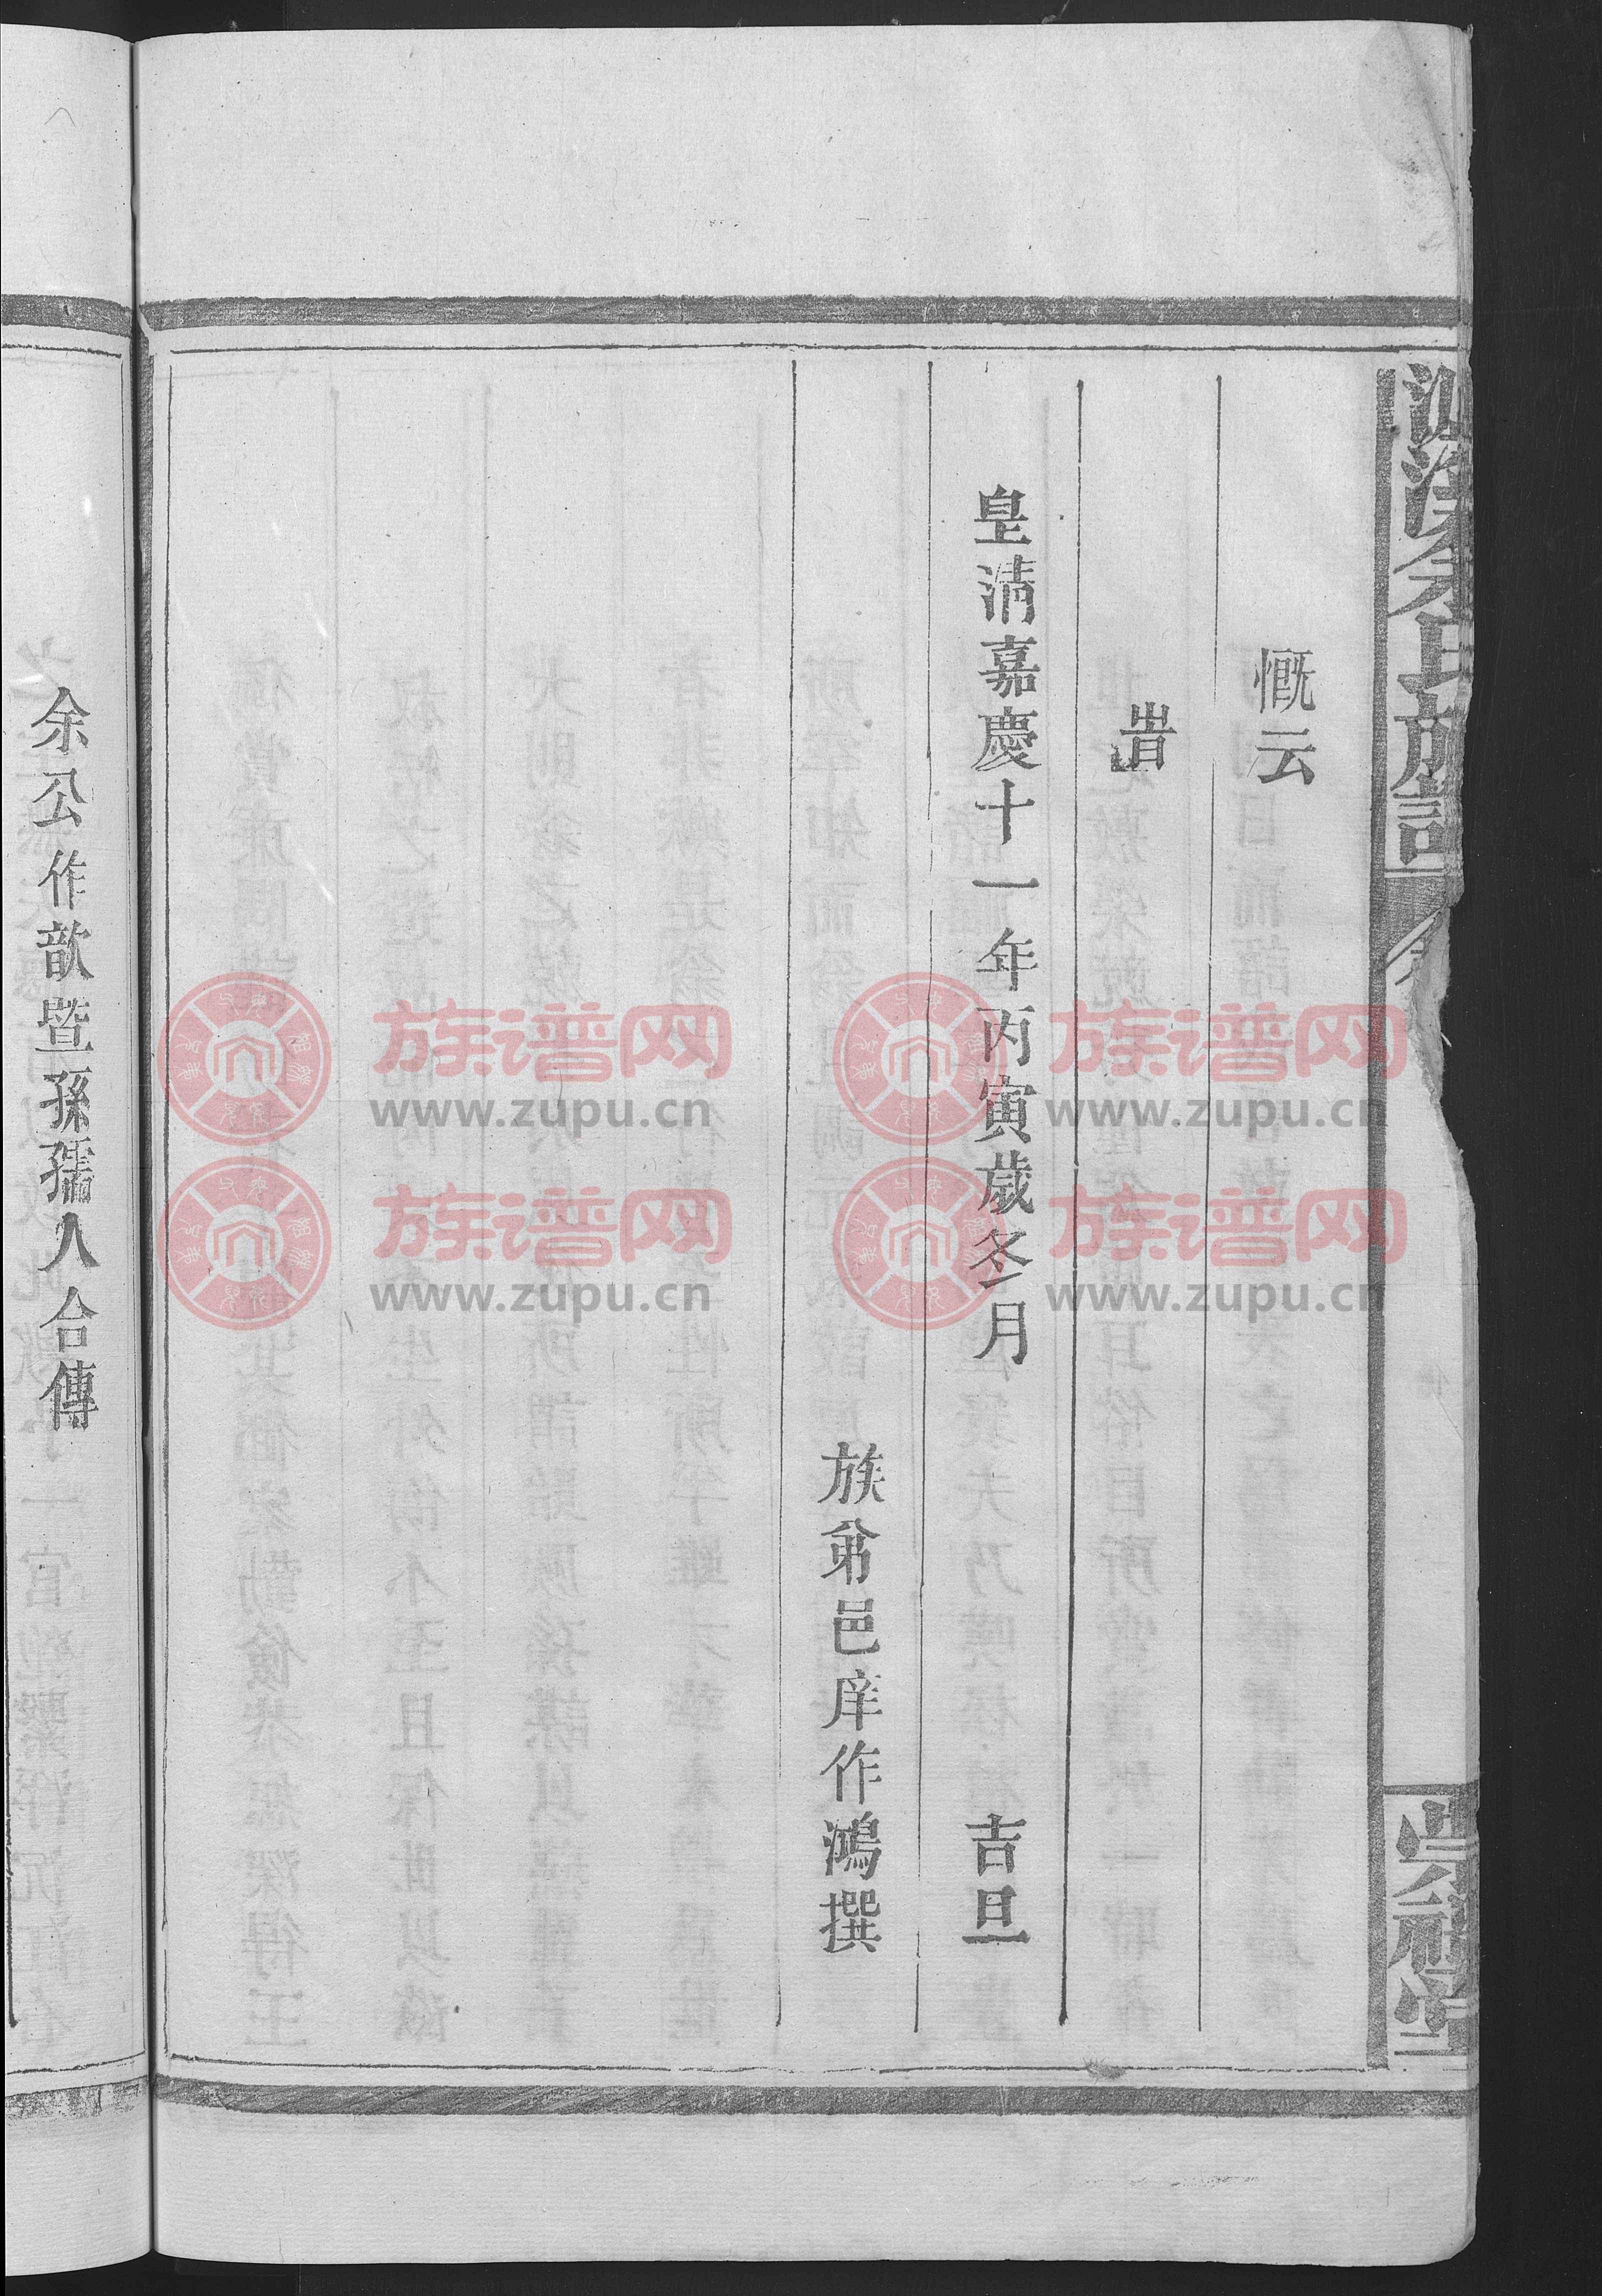 余氏族譜
慨云
旹
皇清嘉慶十一年丙寅歲冬月
吉旦
族弟邑庠作鴻撰
余公作歆暨孫孺人合傳
族谱网
www.zupu.cn
族谱网
www.zupu.cn
族谱网
www.zupu.cn
族谱网
www.zupu.cn